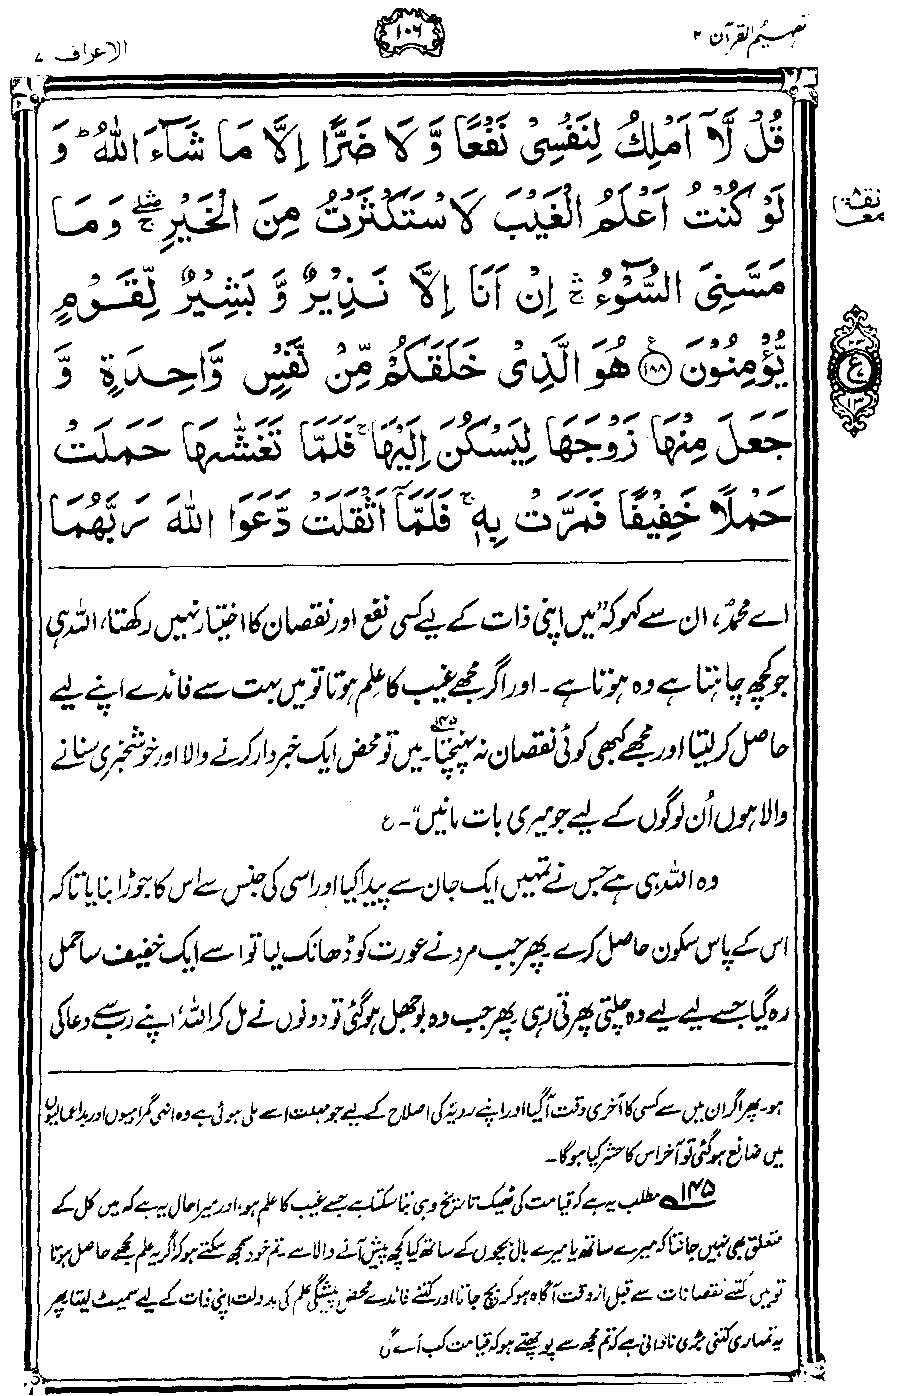 تفہیم القرآن ۲
۱۰۶
الاعراف ۷
قُلْ لَّاۤ اَمْلِكُ لِنَفْسِیْ نَفْعًا وَّ لَا ضَرًّا اِلَّا مَا شَآءَ اللّٰهُ ؕ وَ
لَوْ كُنْتُ اَعْلَمُ الْغَیْبَ لَا سْتَكْثَرْتُ مِنَ الْخَیْرِ ۛۖۚ وَ مَا
مَسَّنِیَ السُّوْٓءُ ۛۚ اِنْ اَنَا اِلَّا نَذِیْرٌ وَّ بَشِیْرٌ لِّقَوْمٍ
یُّؤْمِنُوْنَ ۱۸۸ هُوَ الَّذِیْ خَلَقَكُمْ مِّنْ نَّفْسٍ وَّاحِدَةٍ وَّ
جَعَلَ مِنْهَا زَوْجَهَا لِیَسْكُنَ اِلَیْهَا ۚ فَلَمَّا تَغَشّٰىهَا حَمَلَتْ
حَمْلًا خَفِیْفًا فَمَرَّتْ بِهٖ ۚ فَلَمَّاۤ اَثْقَلَتْ دَّعَوَا اللّٰهَ رَبَّهُمَا
معانقة ۸
ع
۱۳
اے محمدؐ، ان سے کہو کہ ”میں اپنی ذات کے لیے کسی نفع اور نقصان کا اختیار نہیں رکھتا، اللہ ہی
جو کچھ چاہتا ہے وہ ہوتا ہے۔ اور اگر مجھے غیب کا علم ہوتا تو میں بہت سے فائدے اپنے لیے
حاصل کر لیتا اور مجھے کبھی کوئی نقصان نہ پہنچتا۔۱۴۵ میں تو محض ایک خبردار کرنے والا اور خوشخبری سنانے
والا ہوں اُن لوگوں کے لیے جو میری بات مانیں“۔ ع
وہ اللہ ہی ہے جس نے تمہیں ایک جان سے پیدا کیا اور اسی کی جنس سے اس کا جوڑا بنایا تاکہ
اس کے پاس سکون حاصل کرے۔ پھر جب مرد نے عورت کو ڈھانک لیا تو اسے ایک خفیف سا حمل
رہ گیا جسے لیے لیے وہ چلتی پھرتی رہی۔ پھر جب وہ بوجھل ہوگئی تو دونوں نے مل کر اللہ، اپنے رب سے دعا کی
ہو۔ پھر اگر ان میں سے کسی کا آخری وقت آگیا اور اپنے رویّہ کی اصلاح کے لیے جو مہلت اسے ملی ہوئی ہے وہ انہی گمراہیوں اور بداعمالیوں
میں ضائع ہوگئی تو آخر اس کا حشر کیا ہوگا۔
۱۴۵ مطلب یہ ہے کہ قیامت کی ٹھیک تاریخ وہی بتا سکتا ہے جسے غیب کا علم ہو، اور میرا حال یہ ہے کہ میں کل کے
متعلق بھی نہیں جانتا کہ میرے ساتھ یا میرے بال بچوں کے ساتھ کیا کچھ پیش آنے والا ہے۔ تم خود سمجھ سکتے ہو کہ اگر یہ علم مجھے حاصل ہوتا
تو میں کتنے نقصانات سے قبل از وقت آگاہ ہو کر بچ جاتا اور کتنے فائدے محض پیشگی علم کی بدولت اپنی ذات کے لیے سمیٹ لیتا۔ پھر
یہ تمہاری کتنی بڑی نادانی ہے کہ تم مجھ سے پوچھتے ہو کہ قیامت کب آئے گی